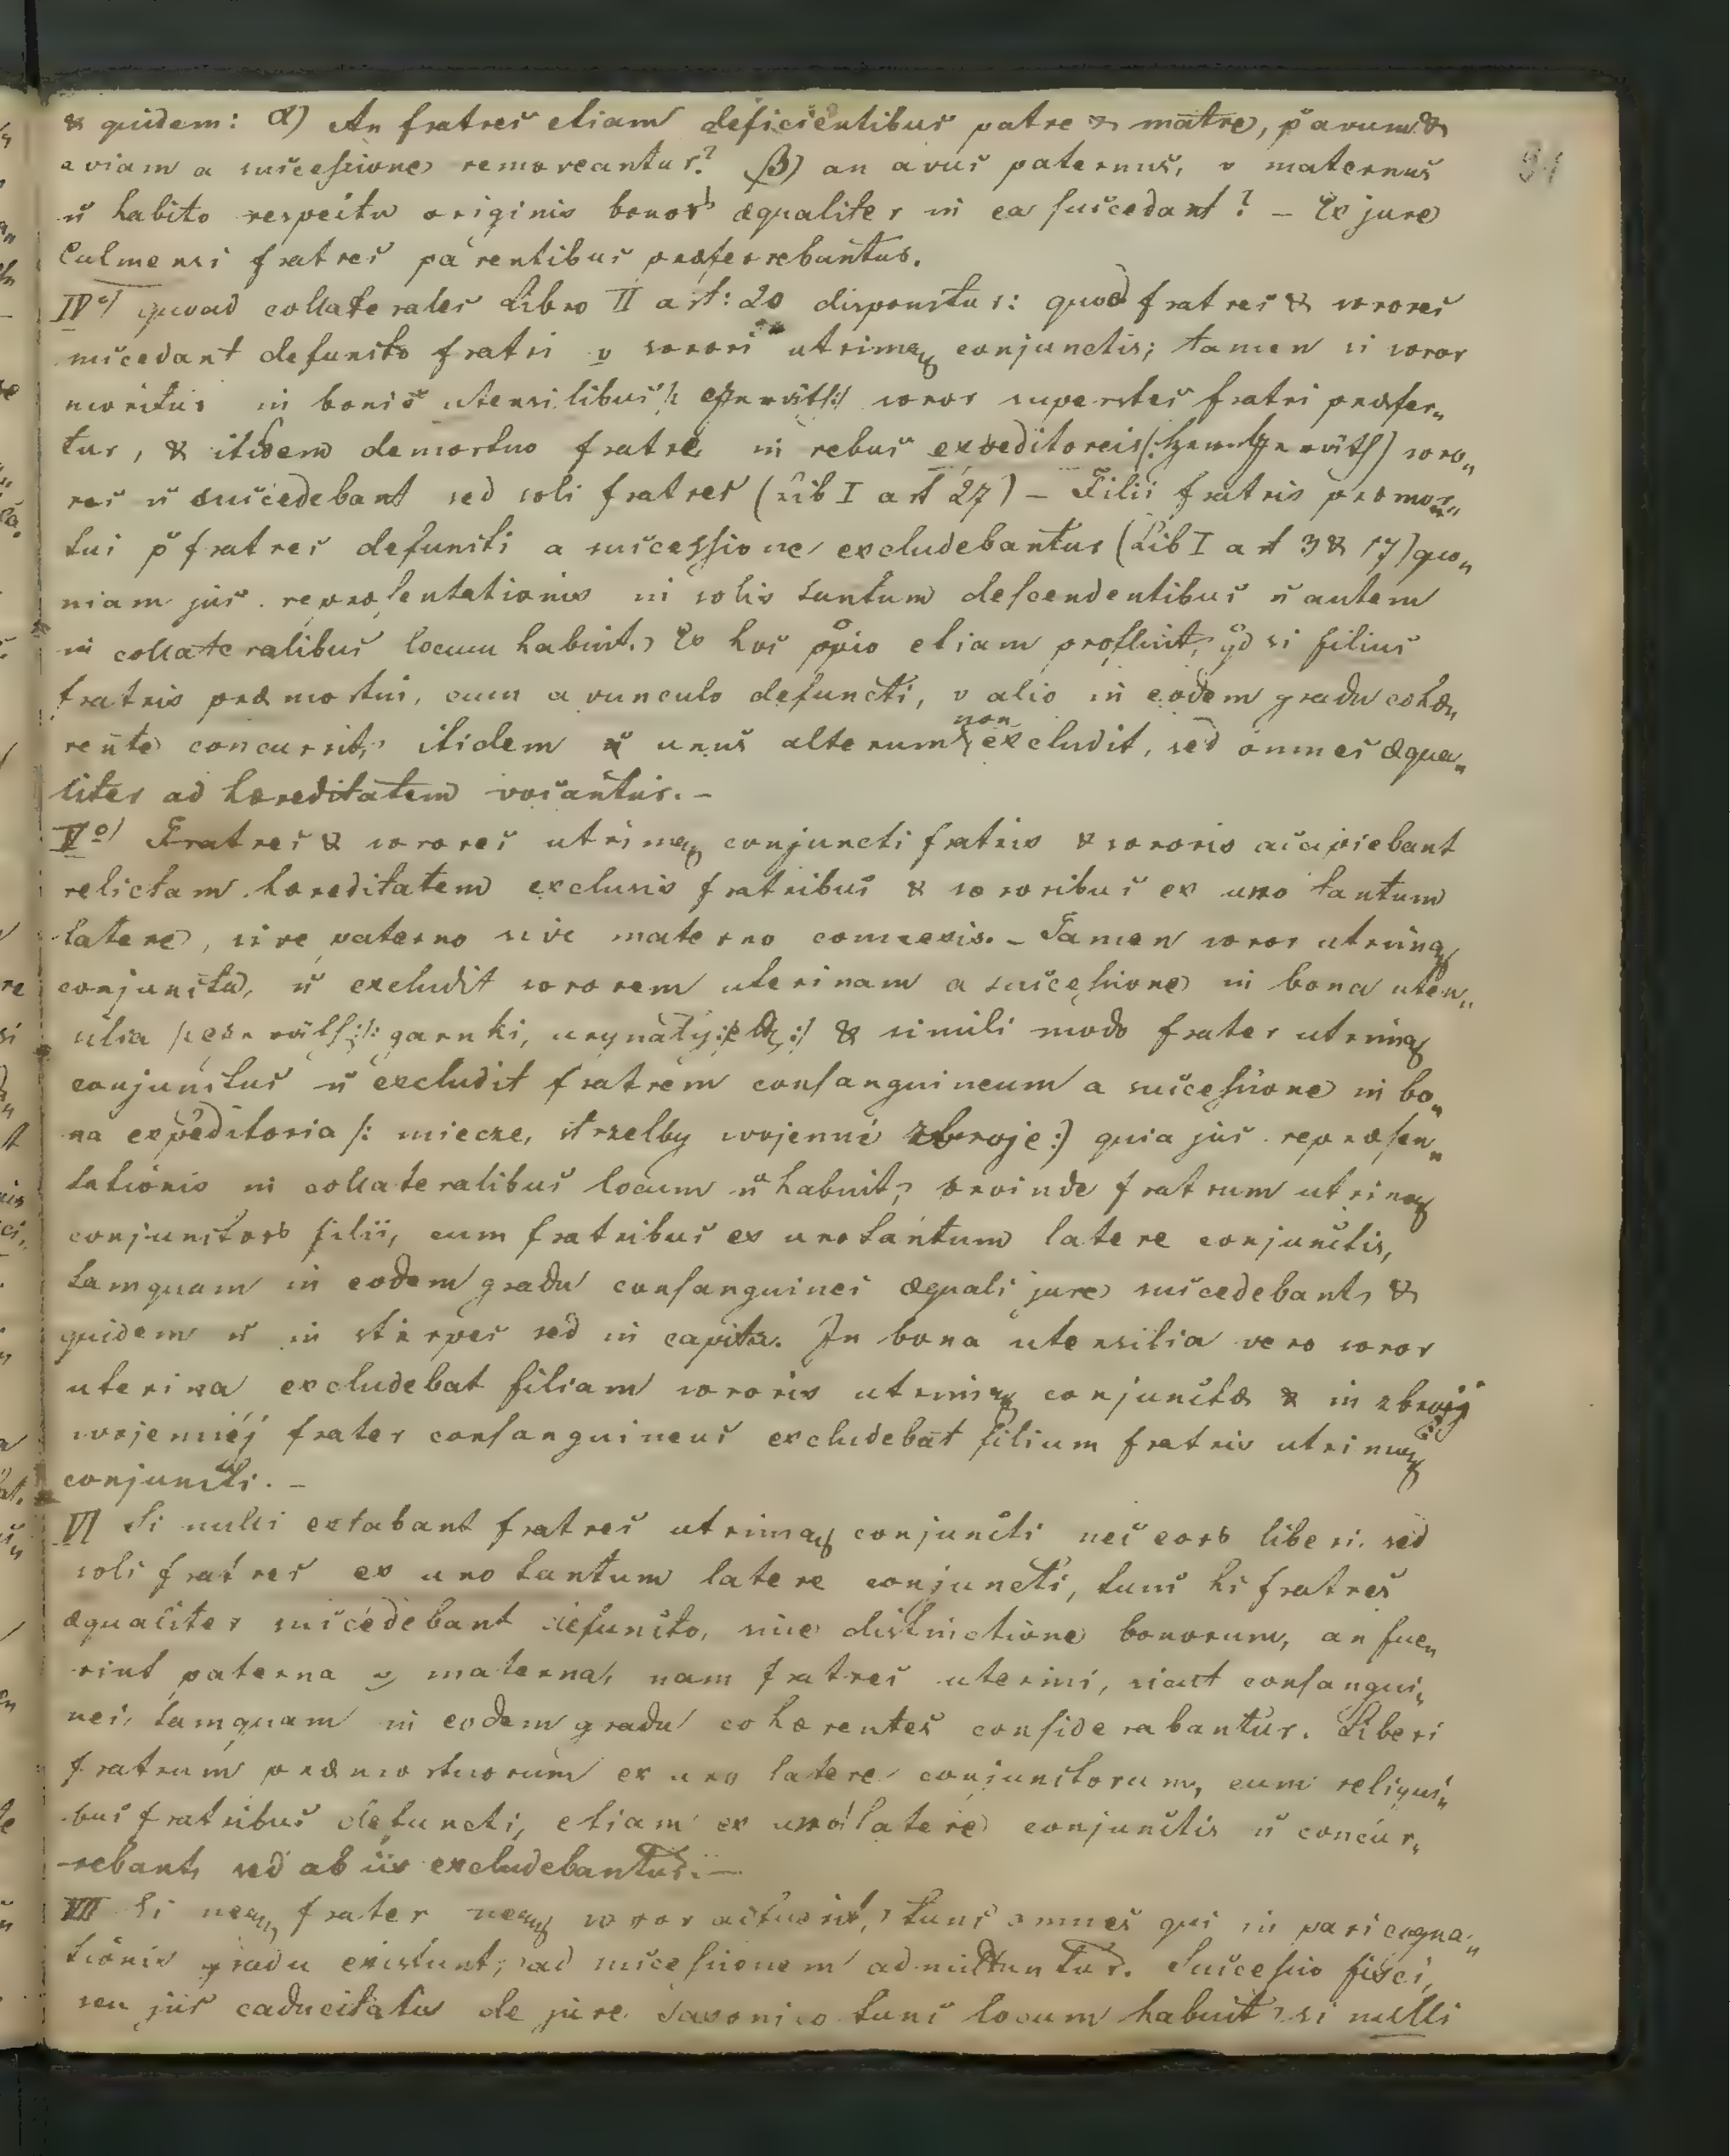 & quidem: α) An fratres etiam deficientibus patre & matre, p̆ avum &
aviam a successione removeantur? β) an avus paternus, v maternus
n̆ habito respectu originis bonor. æqualiter in ea succedant? – Ex jure
Culmensi fratres parentibus præferrebantur.
IV°/ quoad collaterales Libro II art: 20 disponitur: quod fratres & sorores
succedant defuncto fratri v sorori utrimq conjunctis; tamen si soror
moritur in bonis utensilibus /: :/ soror superstes fratri præfer„
tur, & itidem demortuo fratre in rebus expeditoreis soro„
res n̆ succedebant sed soli fratres (Lib I art 27) – Filii fratris præmor„
tui p̆ fratres defuncti a successione excludebantur (Lib I art 3 & 17) quo„
niam jus repræsentationis in solis tantum descendentibus n̆ autem
in collateralibus locum habuit. Ex hoc ppio etiam profluit, q̆d si filius
fratris præmortui, cum avunculo defuncti, v alio in eodem gradu cohæ„
rente concurrit, itidem unus alterum non excludit, sed omnes æqua„
liter ad hæreditatem vocantur. –
V°/ Fratres & sorores utrimq conjuncti fratris & sororis accipiebant
relictam hæreditatem exclusis fratribus & sororibus ex uno tantum
latere, sive paterno sive materno connexis. – Tamen soror utrimq
conjuncta, n̆ excludit sororem uterinam a successione in bona uten„
silia garnki, & simili modo frater utrimq
conjunctus n̆ excludit fratrem consanguineum a successione in bo„
na expeditoria /: miecze, strzelby wojenne zbroje :/ quia jus repræsen„
tationis in collateralibus locum n̆ habuit, proinde fratrum utrimq
conjunctor. filii, cum fratribus ex uno tantum latere conjunctis,
tamquam in eodem gradu consanguinei æquali jure succedebant, &
quidem n̆ in stirpes sed in capita. In bona utensilia vero soror
uterina excludebat filiam sororis utrimq conjunctæ & in zbroji
wojennéj frater consanguineus excludebat filium fratris utrimq
conjuncti. –
VI Si nulli extabant fratres utrimq conjuncti nec eor. liberi, sed
soli fratres ex uno tantum latere conjuncti, tunc hi fratres
æqualiter succedebant defuncto, sine distinctione bonorum, an fue„
rint paterna v materna, nam fratres uterini, sicut consangui„
nei, tamquam in eodem gradu cohærentes considerabantur. Liberi
fratrum præmortuorum ex uno latere conjunctorum, cum reliqui„
bus fratribus defuncti, etiam ex uno latere conjunctis n̆ concur„
rebant, sed ab iis excludebantur. –
VII Si neq frater neq soror tunc omnes qui in pari cogna„
tionis gradu existunt, ad successionem admittuntur. Successio fisci,
seu jus caducitatis de jure Saxonico tunc locum habuit, si nulli